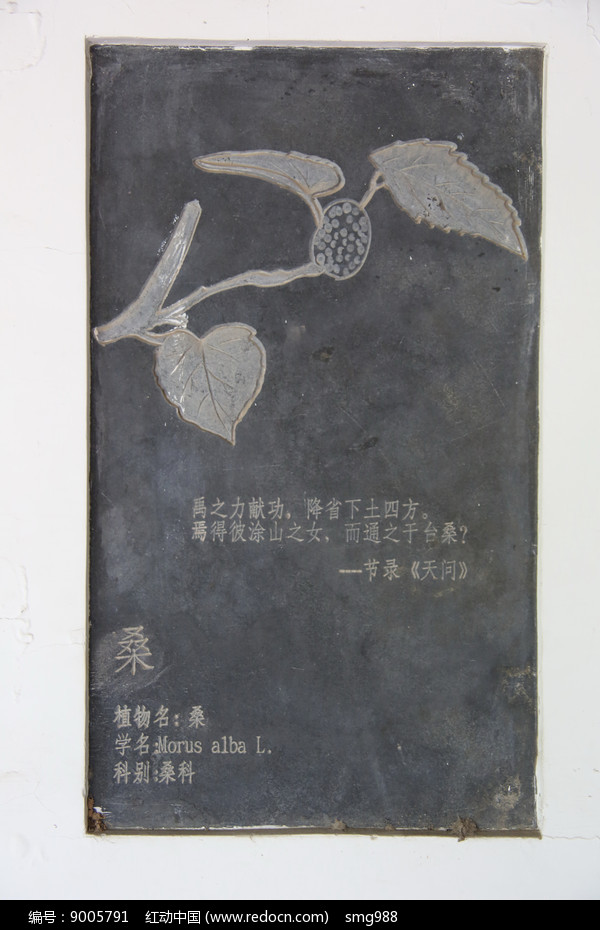 禹之力献功，降省下土四方。
焉得彼涂山之女，而通之于台桑？
——节录《天问》
桑
植物名：桑
学名:Morus alba L.
科别:桑科
编号：9005791 红动中国 (www.redocn.com) smg988